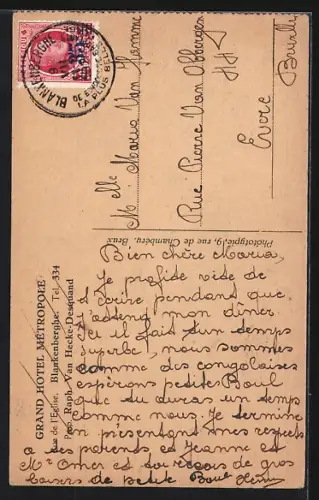 BLANKENBERGHE
LA PLUS BELLE
Melle Maria Van Hamme
Rue Pierre Van Obbergen
Evere
GRAND HOTEL MÉTROPOLE
Rue de l'Eglise. Blankenberghe. Tel. 334
Prop. Raph. Van Hecke-Desquand
Phototypie, 9, rue de Chambéry, Brux
Bien chère Maria,
Je profite vite de
t'écrire pendant que
j'attend mon dîner.
Ici il fait un temps
superbe, nous sommes
comme des congolaises
espérons petite Boul
que tu auras un temps
comme nous. Je termine
en présentant mes respects
a tes parents et Jeanne et
Mr Omer et toi reçois de gros
baisers de petite Boule